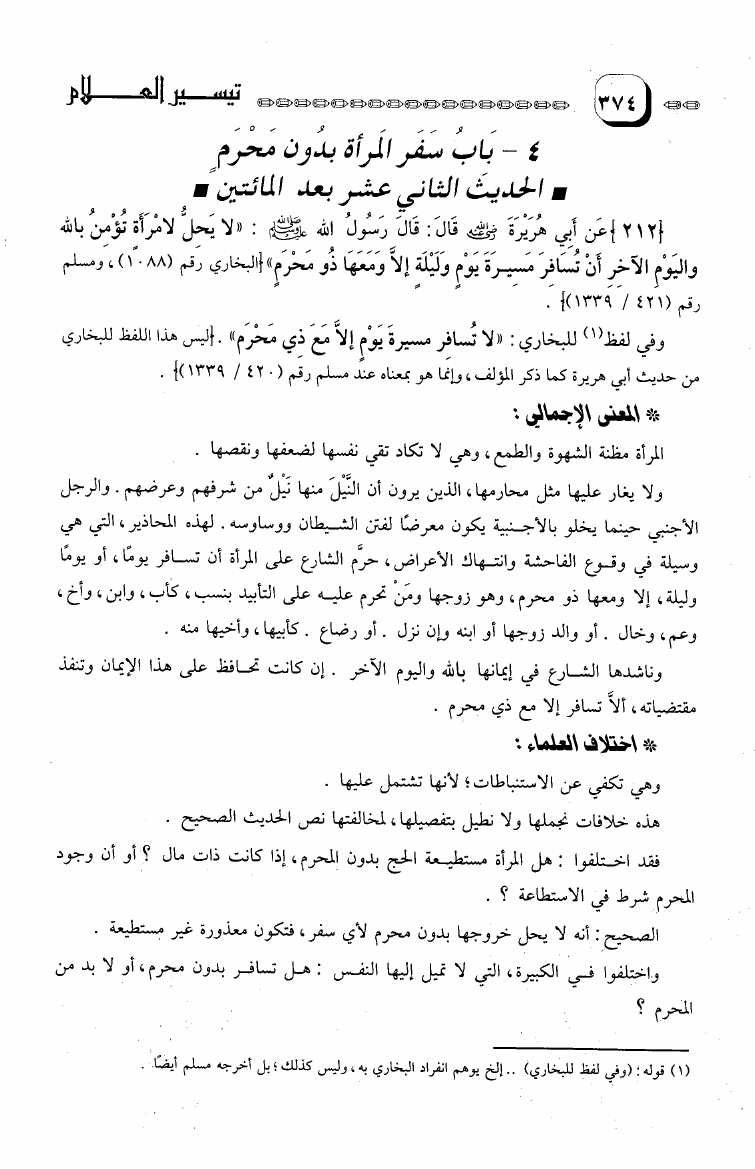 ٣٧٤ تيسير العلام
٤ - بَابُ سَفَرِ المَرأة بدُون مَحْرَمٍ
■ الحديث الثاني عشر بعد المائتين ■
{٢١٢} عَن أبِي هُرَيْرةَ رضي الله عنه قَالَ: قَالَ رَسُولُ الله ﷺ : «لا يَحلُّ لامْرَأَة تُؤْمنُ بالله
واليَوْمِ الآخرِ أنْ تُسَافرَ مَسِيرَةَ يَوْمٍ وَلَيلَة إلاَّ وَمَعَهَا ذُو مَحْرَمٍ» {البخاري رقم (١٠٨٨)، ومسلم
رقم (٤٢١ / ١٣٣٩)} .
وفي لفظ(١) للبخاري: «لا تُسافر مسيرةَ يَوْمٍ إلاَّ مَعَ ذي مَحْرَمٍ» . {ليس هذا اللفظ للبخاري
من حديث أبي هريرة كما ذكر المؤلف، وإنما هو بمعناه عند مسلم رقم (٤٢٠ / ١٣٣٩)} .
* المعنى الإجمالي :
المرأة مظنة الشهوة والطمع، وهي لا تكاد تقي نفسها لضعفها ونقصها .
ولا يغار عليها مثل محارمها، الذين يرون أن النَّيْلَ منها نَيْلٌ من شرفهم وعرضهم . والرجل
الأجنبي حينما يخلو بالأجنبية يكون معرضًا لفتن الشيطان ووساوسه . لهذه المحاذير، التي هي
وسيلة في وقوع الفاحشة وانتهاك الأعراض، حرَّم الشارع على المرأة أن تسافر يومًا، أو يومًا
وليلة، إلا ومعها ذو محرم، وهو زوجها ومَنْ تحرم عليه على التأبيد بنسب، كأب، وابن، وأخ،
وعم، وخال . أو والد زوجها أو ابنه وإن نزل . أو رضاع . كأبيها، وأخيها منه .
وناشدها الشارع في إيمانها بالله واليوم الآخر . إن كانت تحافظ على هذا الإيمان وتنفذ
مقتضياته، ألاَّ تسافر إلا مع ذي محرم .
* اختلاف العلماء :
وهي تكفي عن الاستنباطات؛ لأنها تشتمل عليها .
هذه خلافات نجملها ولا نطيل بتفصيلها، لمخالفتها نص الحديث الصحيح .
فقد اختلفوا : هل المرأة مستطيعة الحج بدون المحرم، إذا كانت ذات مال ؟ أو أن وجود
المحرم شرط في الاستطاعة ؟ .
الصحيح: أنه لا يحل خروجها بدون محرم لأي سفر، فتكون معذورة غير مستطيعة .
واختلفوا في الكبيرة، التي لا تميل إليها النفس : هل تسافر بدون محرم، أو لا بد من
المحرم ؟
(١) قوله: (وفي لفظ للبخاري) .. إلخ يوهم انفراد البخاري به، وليس كذلك؛ بل أخرجه مسلم أيضًا .